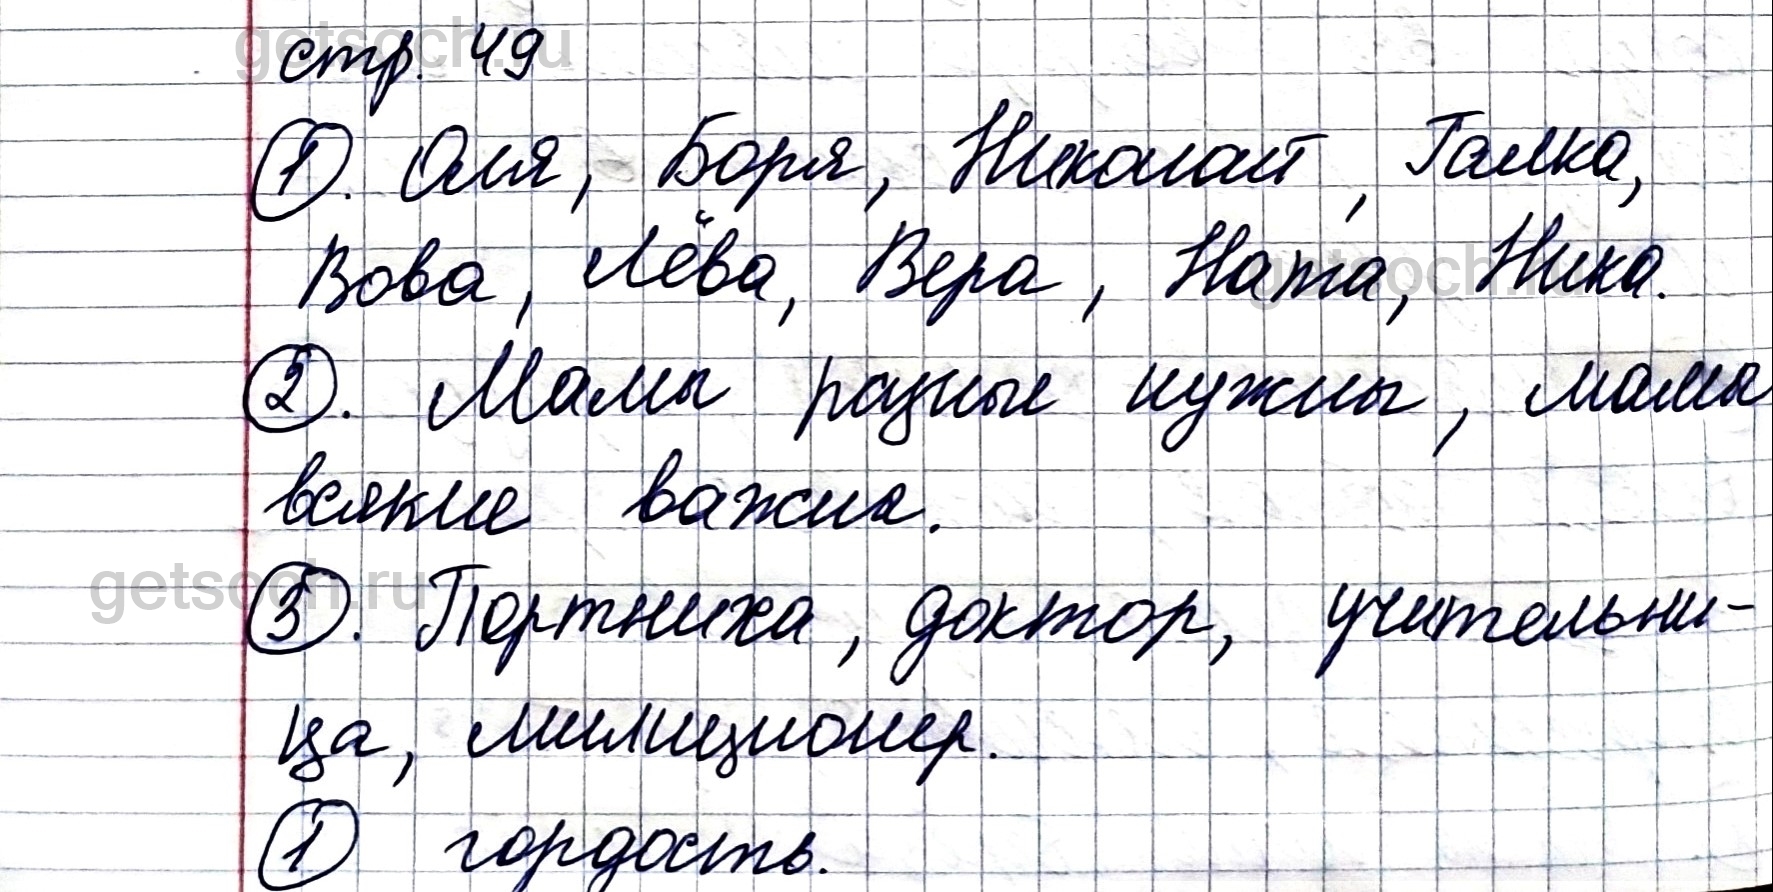 стр. 49
1. Оля, Боря, Николай, Галка,
Вова, Лёва, Вера, Ната, Ника.
2. Мамы разные нужны, мамы
всякие важны.
3. Портниха, доктор, учительни-
ца, милиционер.
1 гордость.
getsoch.ru
getsoch.ru
getsoch.ru